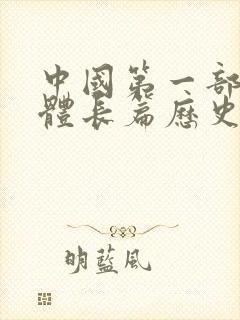 中國第一部
體長篇歷史
明藍風